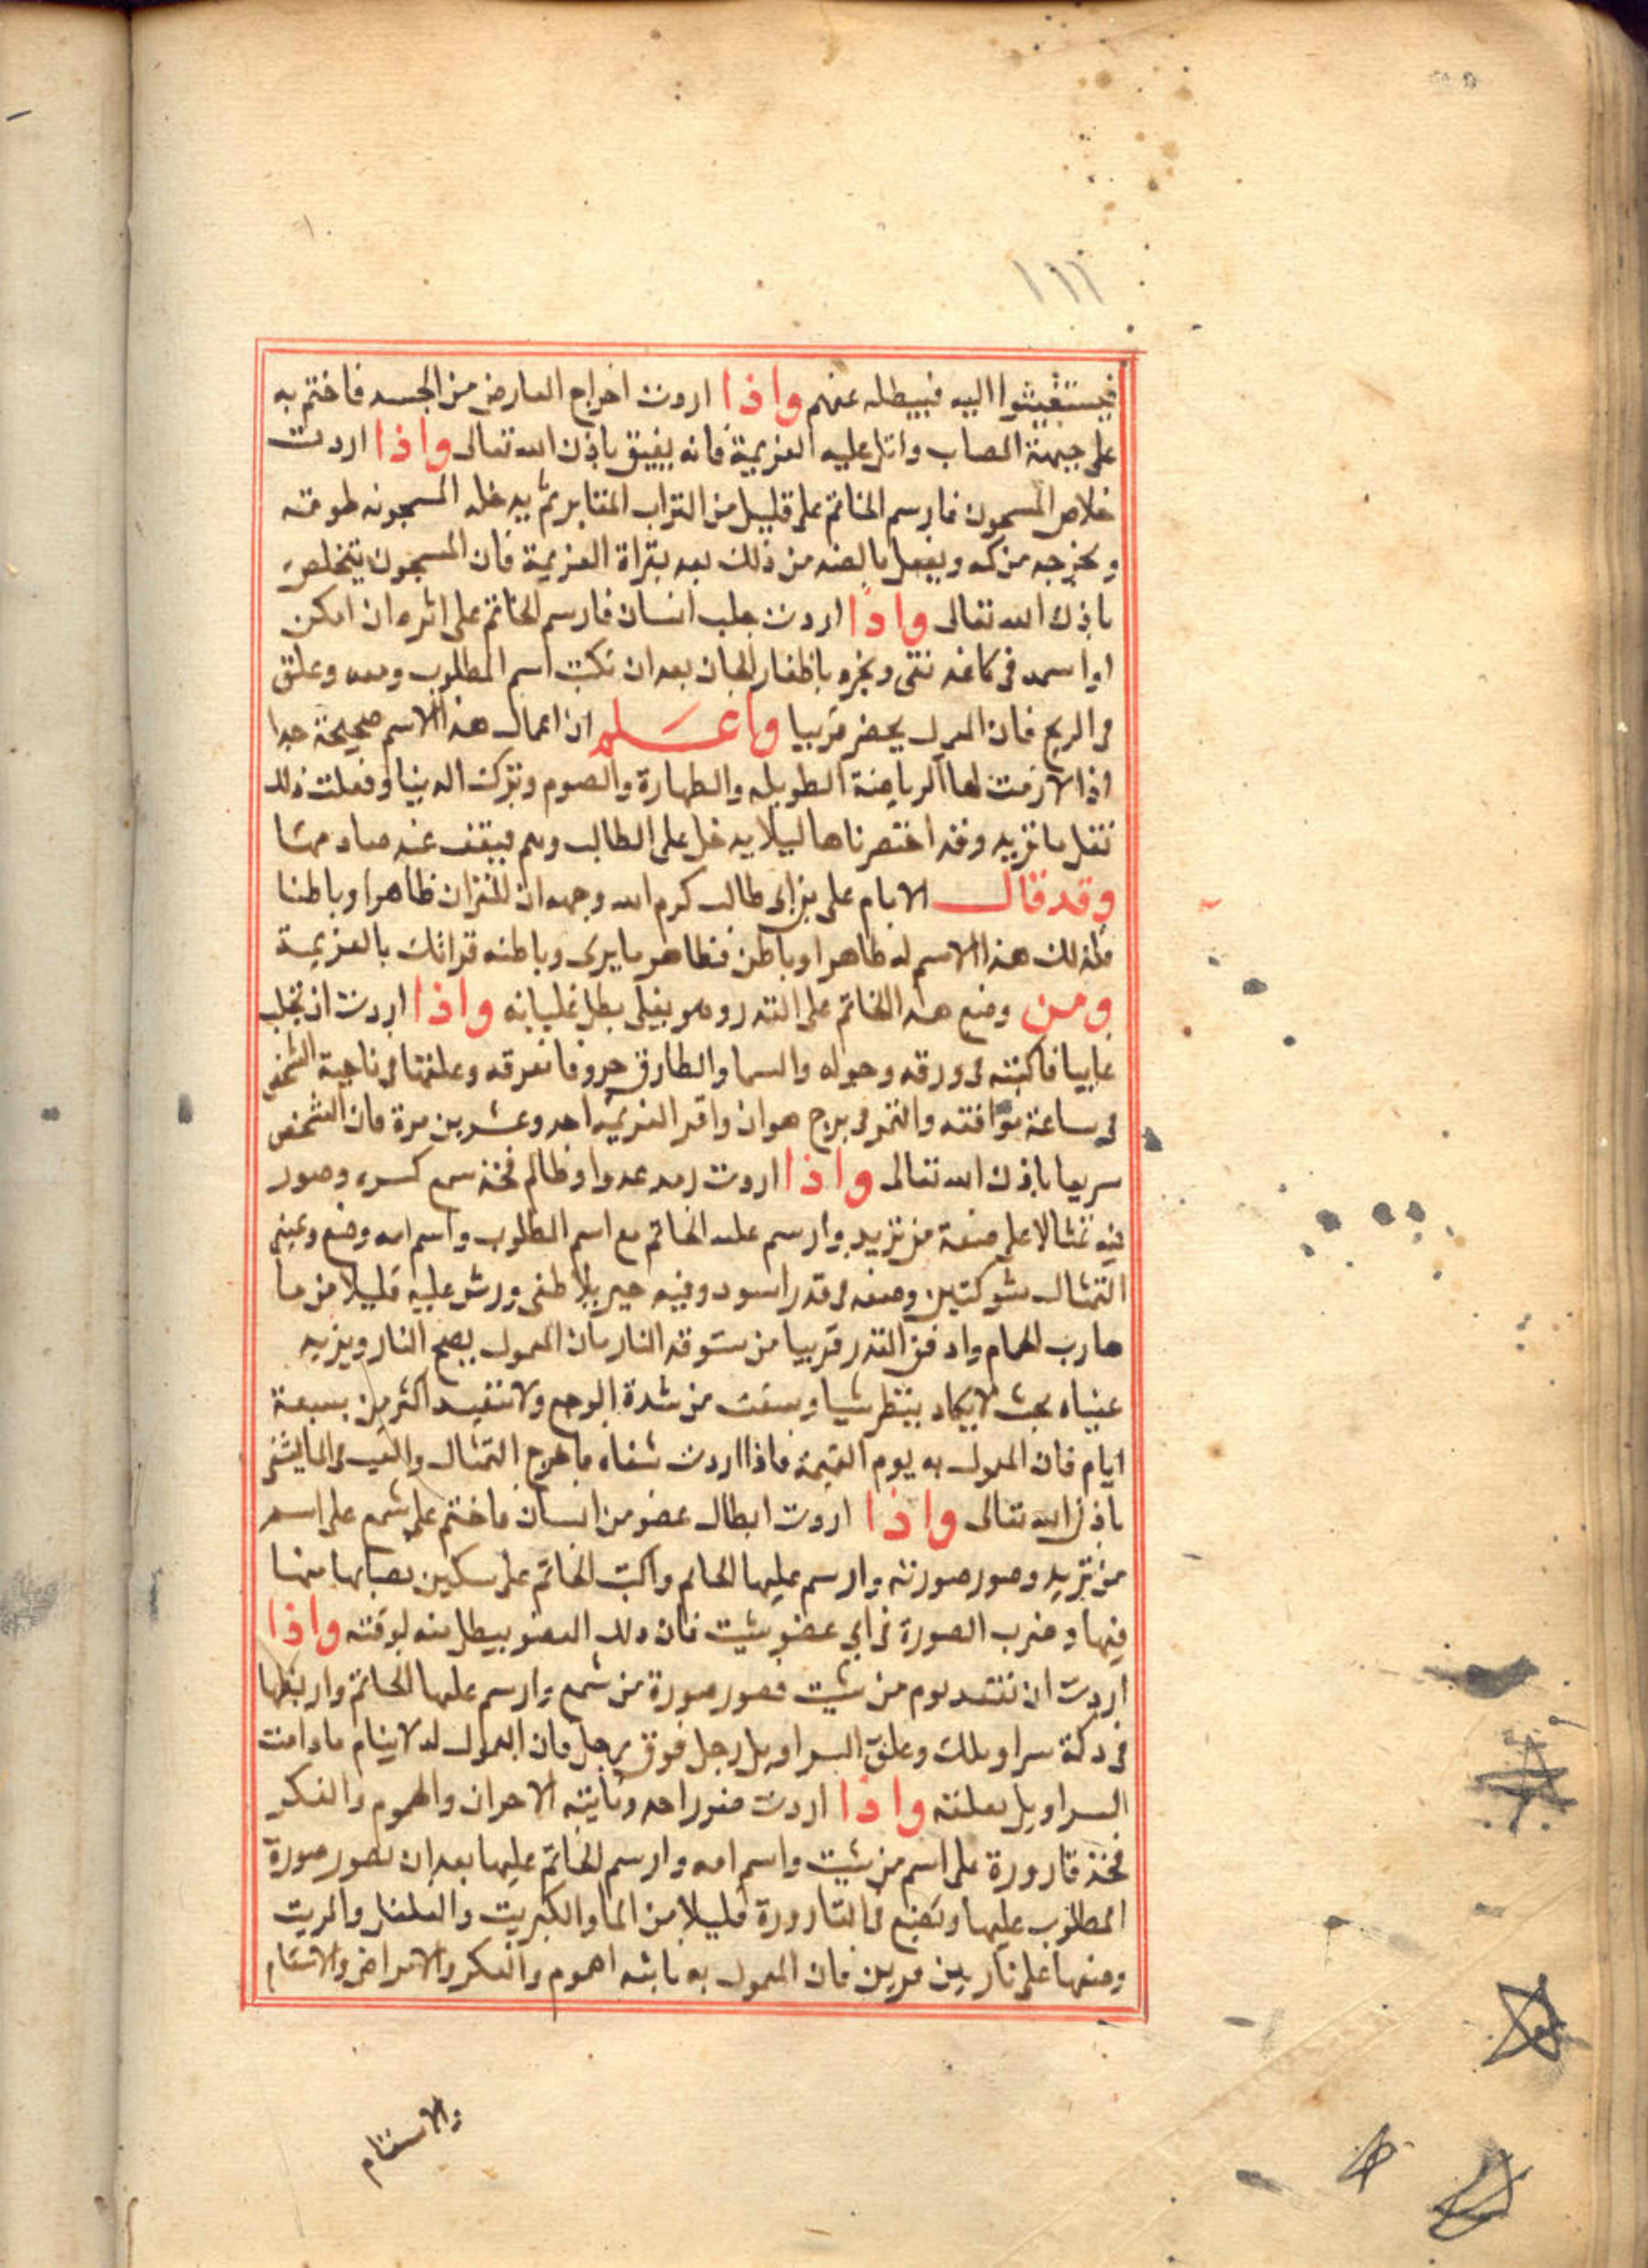 ١١١
فيستغيثوا اليه فيبطله عنهم واذا اردت اخراج العارض من الجسد فاختم به
على جبهة المصاب واتل عليه العزيمة فانه يفيق باذن الله تعالى واذا اردت
خلاص المسجون فارسم الخاتم على قليل من التراب المقابر ثم يدخله المسجونه طوقته
ويخرجه من كمه ويفعل بالضد من ذلك بعد بقراة العزيمة فان المسجون يتخلص
باذن الله تعالى واذا اردت جلب انسان فارسم الخاتم على اثره ان امكن
او اسمه فى كاغد نقى وبخره باظفار الجان بعد ان تكتب اسم المطلوب ومعه وعلق
فى الريح فان المعمول يحضر قريبا واعلم ان اعمال هذا الاسم صحيحة جدا
اذا لازمت لها الرياضة الطويله والطهارة والصوم وتركت الدنيا وفعلت ذلك
تفعل ما تريد وقد اختصرناها ليلا يدخل على الطالب وهم فيقف عنه
وقد قال الامام على بن ابى طالب كرم الله وجهه ان للقران ظاهرا وباطنا
فلذلك هذا الاسم له ظاهرا وباطن فظاهر ما يرى وباطنه قراتك بالعزيمة
ومن وضع هذا الخاتم على القدر وهو يغلى بطل غليانه واذا اردت ان تجلب
غايبا فاكتبه فى ورقه وحوله والسما والطارق حروفا مفرقه وعلقها فى ناحية الشخص
فى ساعة موافقه والقمر فى برج هوان واقر العزيمه احد وعشرين مرة فان الشخص
سريعا باذن الله تعالى واذا اردت رمد عدوا وظالم فخذ شمع وصور
فيه تمثالا على صفة من تريد وارسم عليه الخاتم مع اسم المطلوب واسم امه وضع وعينى
التمثال شوكتين وضعه فى قدر اسود وفيه جير بلا طفى ورش عليه قليلا من ما
حارب الحمام وادفن القدر قريبا من مستوقد النار فان المعمول يصبح النار ويزيد
عيناه بحيث لا يكاد ينظر شيا من شدة الوجع ولا تقيد اكثر من سبعة
ايام فان المعمول به يوم القيمة فاذا اردت شفاه فاخرج التمثال والقيه فى الما يشفى
باذن الله تعالى واذا اردت ابطال عضو من انسان فاختم على شمع على اسم
من تريد وصور صورته وارسم عليها الخاتم واكتب الخاتم على سكين نصابها منها
فيها وضرب الصورة فى اى عضو شيت فان ذلك العضو يبطل منه لوقته واذا
اردت ان تعقد نوم من شيت فصور صورة من شمع وارسم عليها الخاتم واربطها
فى دكة سراويلك وعلق السراويل رجل فوق رجل فان المعمول له لا ينام مادامت
السراويل معلقه واذا اردت احد وتاتيه الاحزان والهموم والفكر
فخذ قارورة على اسم من شيت واسم امه وارسم الخاتم عليها بعد ان تصور صورة
المطلوب عليها وتضع فى القارورة قليلا من الما والكبريت والفلفل والزيت
وضعها على نار فان المعمول به ياتيه الهموم والفكر والامراض والاسقام
والاسقام